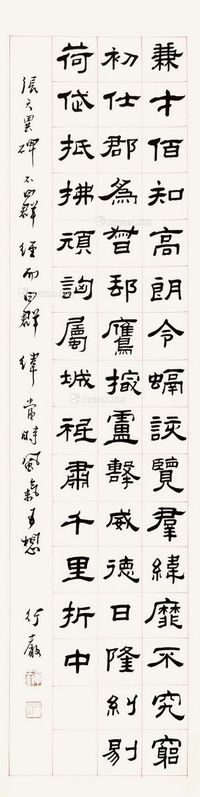 兼才佰知高朗令螎該覽羣緯靡不究窮
初仕郡為督郵鷹撮盧擊威德日隆糾剔
荷抵拂頑訩屬城祗肅千里折中
張元異碑不曰群經而曰群緯當時風氣可想 行嚴